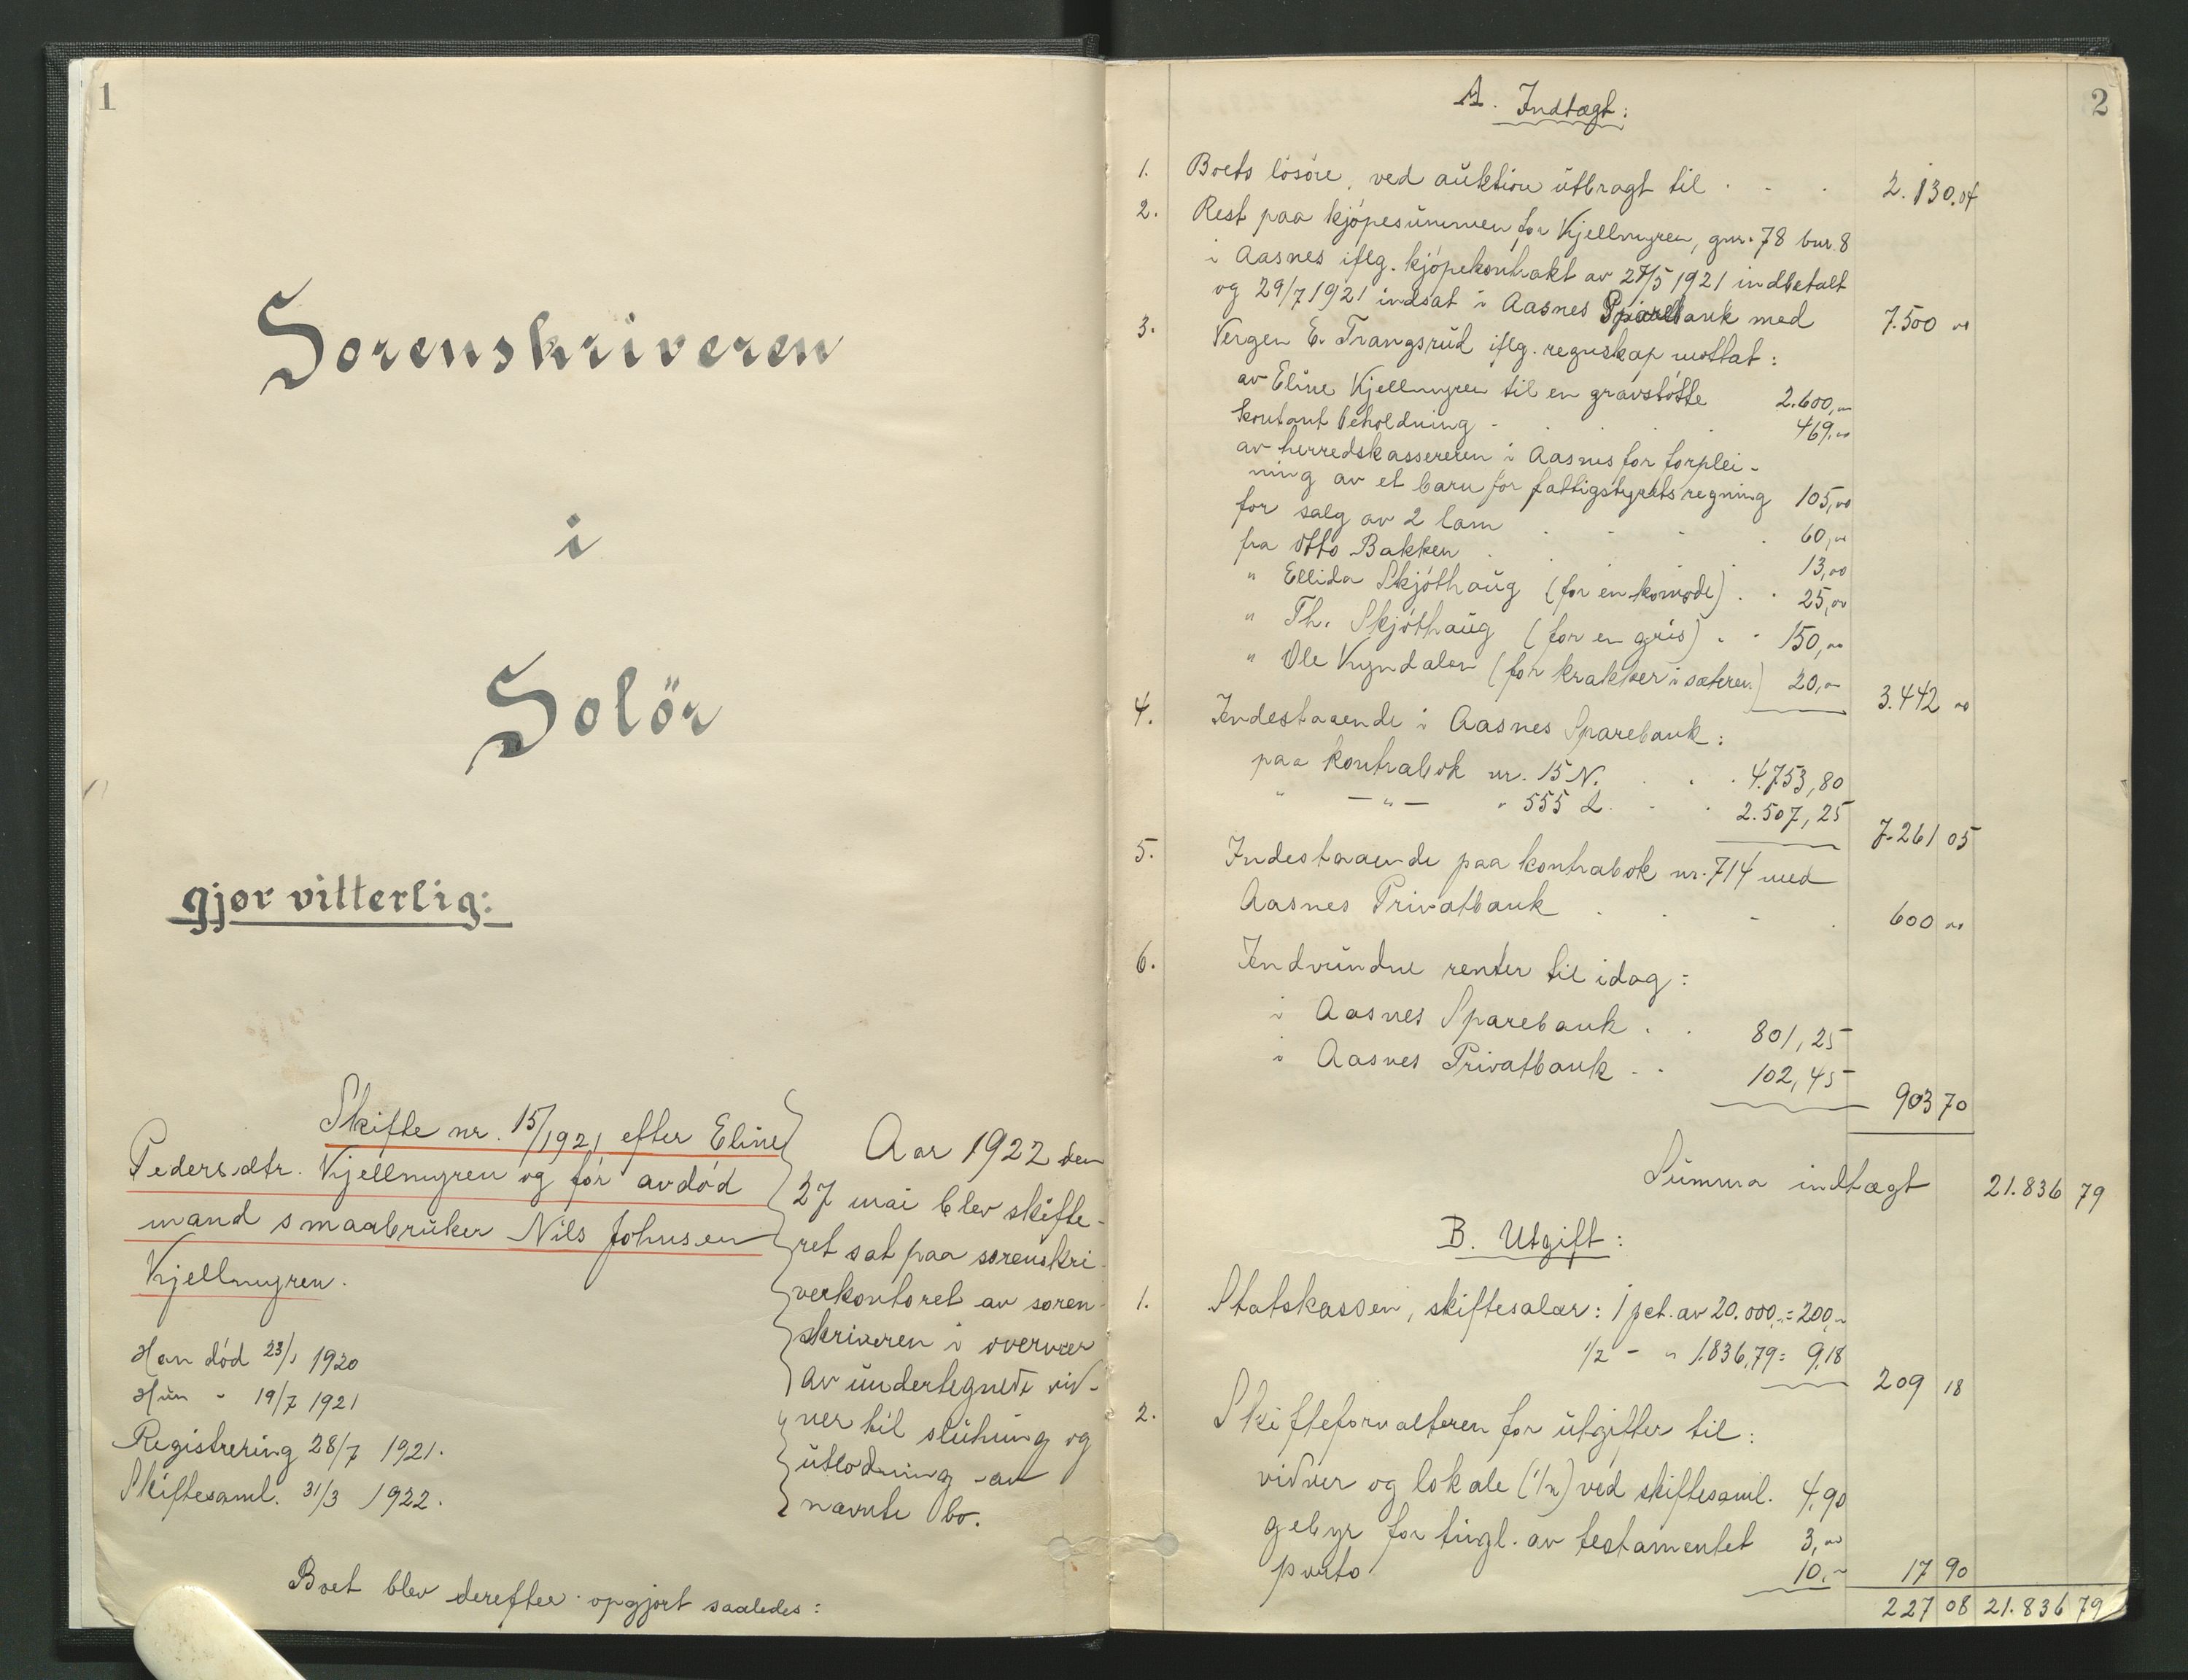 1
Sorenskriveren
i
Solör
gjør vitterlig:
Skifte nr. 15/1921 efter Eline
Pedersdtr. Kjellmyren og før avdød
mand smaabruker Nils Johnsen
Kjellmyren.
Han död 23/1 1920
Hun - 19/7 1921
Registrering 28/7 1921.
Skiftesaml. 31/3 1922.
Aar 1922 den
27 mai blev skifte-
ret sat paa sorenskri-
verkontoret av soren-
skriveren i overvær
av undertegnede vid-
ner til slutning og
utlodning av
nævnte bo.
Boet blev derefter opgjort saaledes:
2
A. Indtægt:
1. Boets lösöre, ved auktion utbragt til . - . 2.130.04
2. Rest paa kjöpesummen for Kjellmyren, gnr. 78 bnr. 8
i Aasnes iflg. kjöpekontrakt av 27/5 1921 indbetalt
og 29/7 1921 indsat i Aasnes Sparebank med 7.500 00
3. Vergen E. Trangsrud iflg. regnskap mottat:
av Eline Kjellmyren til en gravstötte 2.600,00
kontant beholdning - . . . 469,00
av herredskassereren i Aasnes for forplei-
ning av et barn for fattigstyrets regning 105,00
for salg av 2 lam . - - . 60,00
fra Otto Bakken . . . . 13,00
" Ellida Skjöthaug (for en komode) . . 25,00
" Th. Skjöthaug (for en gris) . . 150,00
" Ole Kyndalen (for krakker i sæteren) 20,00 3.442 00
4. Indestaaende i Aasnes Sparebank:
paa kontrabok nr. 15 N. . . . 4.753,80
" —"— " 555 L. . . 2.507,25 7.261 05
5. Indestaaende paa kontrabok nr. 714 med
Aasnes Privatbank . . - . 600 00
6. Indvundne renter til idag:
i Aasnes Sparebank . . 801,25
i Aasnes Privatbank - . 102,45 903 70
Summa indtægt 21.836 79
B. Utgift:
1. Statskassen, skiftesalær: 1 pct. av 20.000,- = 200,-
1/2 - " 1.836,79 = 9,18 209 18
2. Skifteforvalteren for utgifter til:
vidner og lokale (1/2) ved skiftesaml. 4,90
gebyr for tingl. av testamentet 3,00
porto 10,- 17 90
227 08 21.836 79